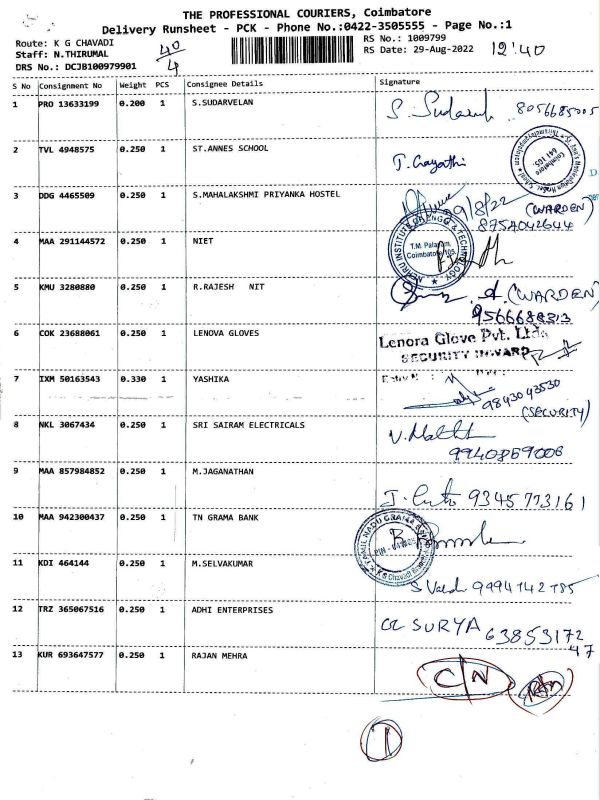 THE PROFESSIONAL COURIERS, Coimbatore
Delivery Runsheet - PCK - Phone No.:0422-3505555 - Page No.:1
Route: K G CHAVADI
Staff: N.THIRUMAL
DRS No.: DCJB100979901
40/4
RS No.: 1009799
RS Date: 29-Aug-2022
12:40
S No Consignment No Weight PCS Consignee Details Signature
1 PRO 13633199 0.200 1 S.SUDARVELAN 8056685005
2 TVL 4948575 0.250 1 ST.ANNES SCHOOL T. Gayathri
Coimbatore
641 105.
3 DDG 4465509 0.250 1 S.MAHALAKSHMI PRIYANKA HOSTEL 29/8/22 (WARDEN)
8754042644
4 MAA 291144572 0.250 1 NIET
NEHRU INSTITUTE OF ENGG & TECHNOLOGY
T.M. Palayam,
Coimbatore - 105.
5 KMU 3280880 0.250 1 R.RAJESH NIT (WARDEN)
9566688313
6 COK 23688061 0.250 1 LENOVA GLOVES Lenora Glove Pvt. Ltd.
SECURITY INWARD
7 IXM 50163543 0.330 1 YASHIKA 9843043530
(SECURITY)
8 NKL 3067434 0.250 1 SRI SAIRAM ELECTRICALS
9940859006
9 MAA 857984852 0.250 1 M.JAGANATHAN 9345773161
10 MAA 942300437 0.250 1 TN GRAMA BANK
TAMIL NADU GRAMA BANK
11 KDI 464144 0.250 1 M.SELVAKUMAR 9994742785
12 TRZ 365067516 0.250 1 ADHI ENTERPRISES SURYA 63853172
47
13 KUR 693647577 0.250 1 RAJAN MEHRA C/N
1